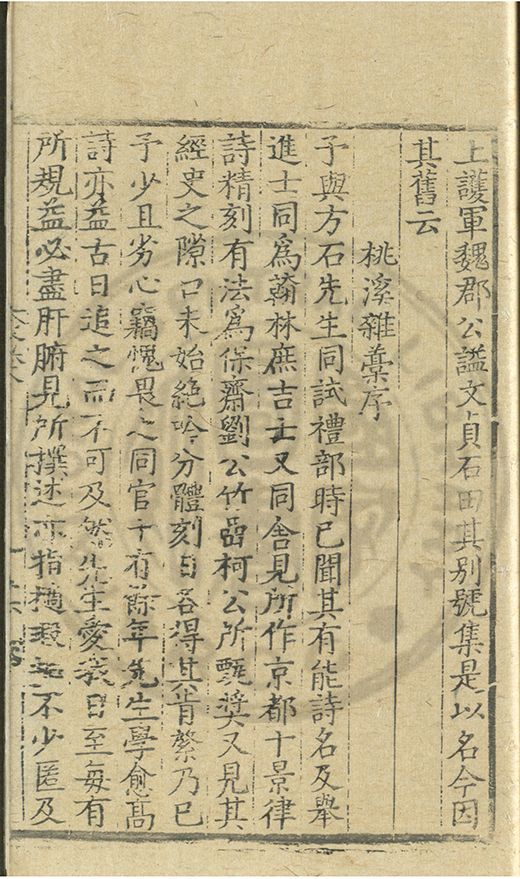 上護軍魏郡公謚文貞石田其别號集是以名今因
其舊云
桃溪雜藁序
予與方石先生同試禮部時已聞其有能詩名及舉
進士同爲翰林庶吉士又同舍見所作京都十景律
詩精刻有法爲保齋劉公竹嵒柯公所甄奬又見其
經史之隙口未始絶吟分體刻日各得其肯綮乃已
予少且劣心竊愧畏之同官十有餘年先生學愈高
詩亦益古日追之而不可及然先生愛我日至每有
所規益必盡肝腑見所撰述亦指摘瑕玼不少匿及